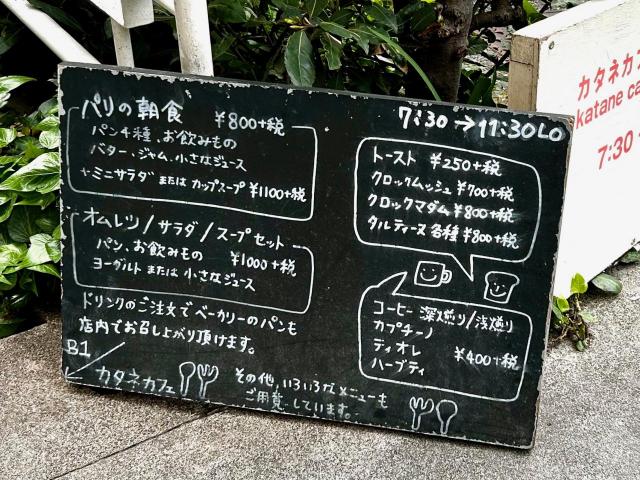 パリの朝食 ¥800+税
パン4種、お飲みもの
バター、ジャム、小さなジュース
+ミニサラダ または カップスープ ¥1100+税
オムレツ/サラダ/スープセット
パン、お飲みもの ¥1000+税
ヨーグルト または 小さなジュース
ドリンクのご注文でベーカリーのパンも
店内でお召し上がり頂けます。
B1
カタネカフェ
その他、いろいろなメニューも
ご用意しています。
7:30→11:30LO
トースト ¥250+税
クロックムッシュ ¥700+税
クロックマダム ¥800+税
タルティーヌ各種 ¥800+税
コーヒー 深煎り/浅煎り
カプチーノ
ティオレ ¥400+税
ハーブティ
カタネカフ
katane ca
7:30